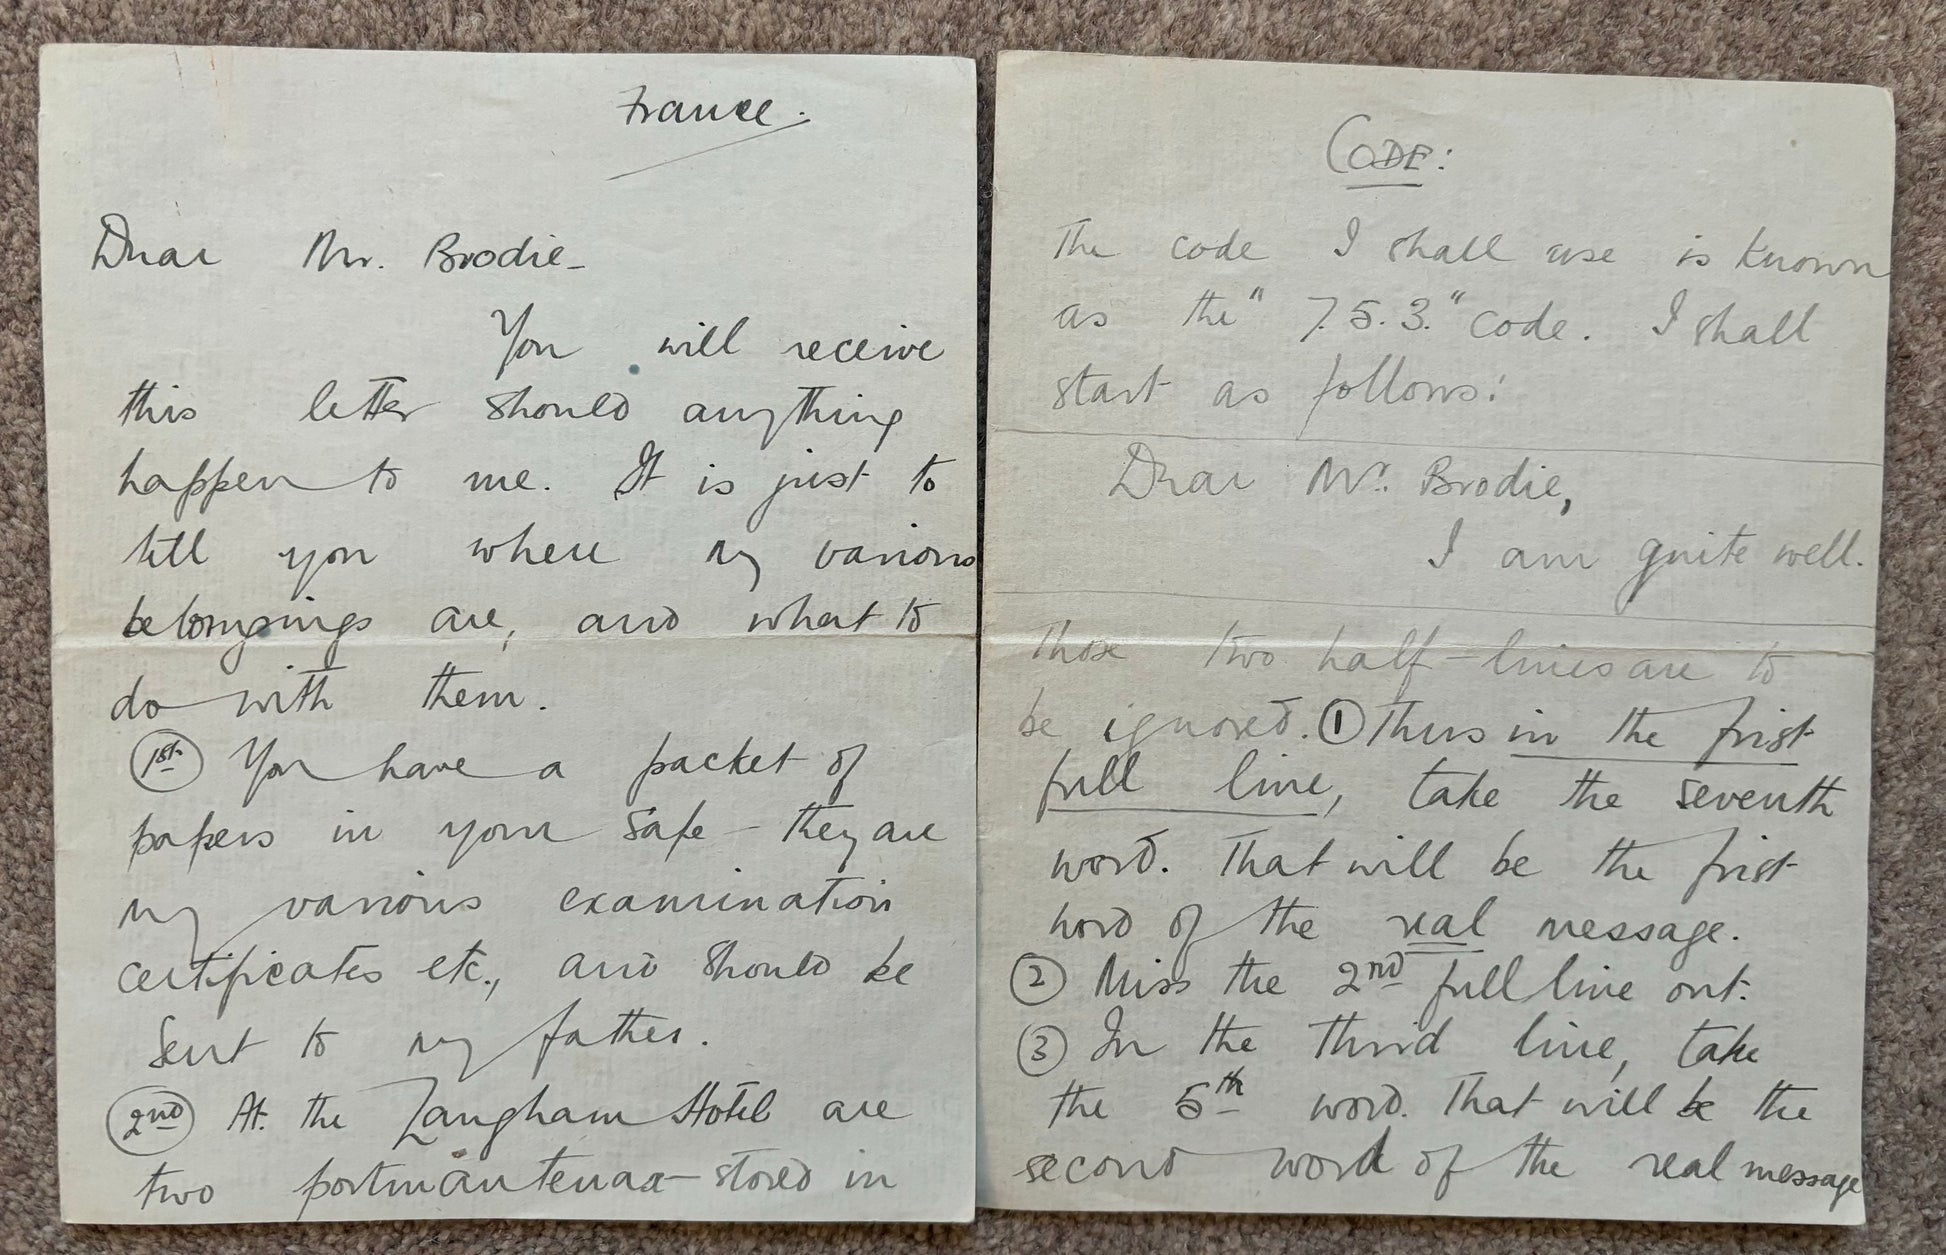 France.
Dear Mr. Brodie-
You will receive
this letter should anything
happen to me. It is just to
tell you where my various
belongings are, and what to
do with them.
1st You have a packet of
papers in your safe - they are
my various examination
certificates etc., and should be
sent to my father.
2nd At the Langham Hotel are
two portmanteaux stored in
CODE:
The code I shall use is known
as the "7.5.3." code. I shall
start as follows:
Dear Mr. Brodie,
I am quite well.
Those two half-lines are to
be ignored. 1 Thus in the first
full line, take the seventh
word. That will be the first
word of the real message.
2 Miss the 2nd full line out.
3 In the third line, take
the 5th word. That will be the
second word of the real message